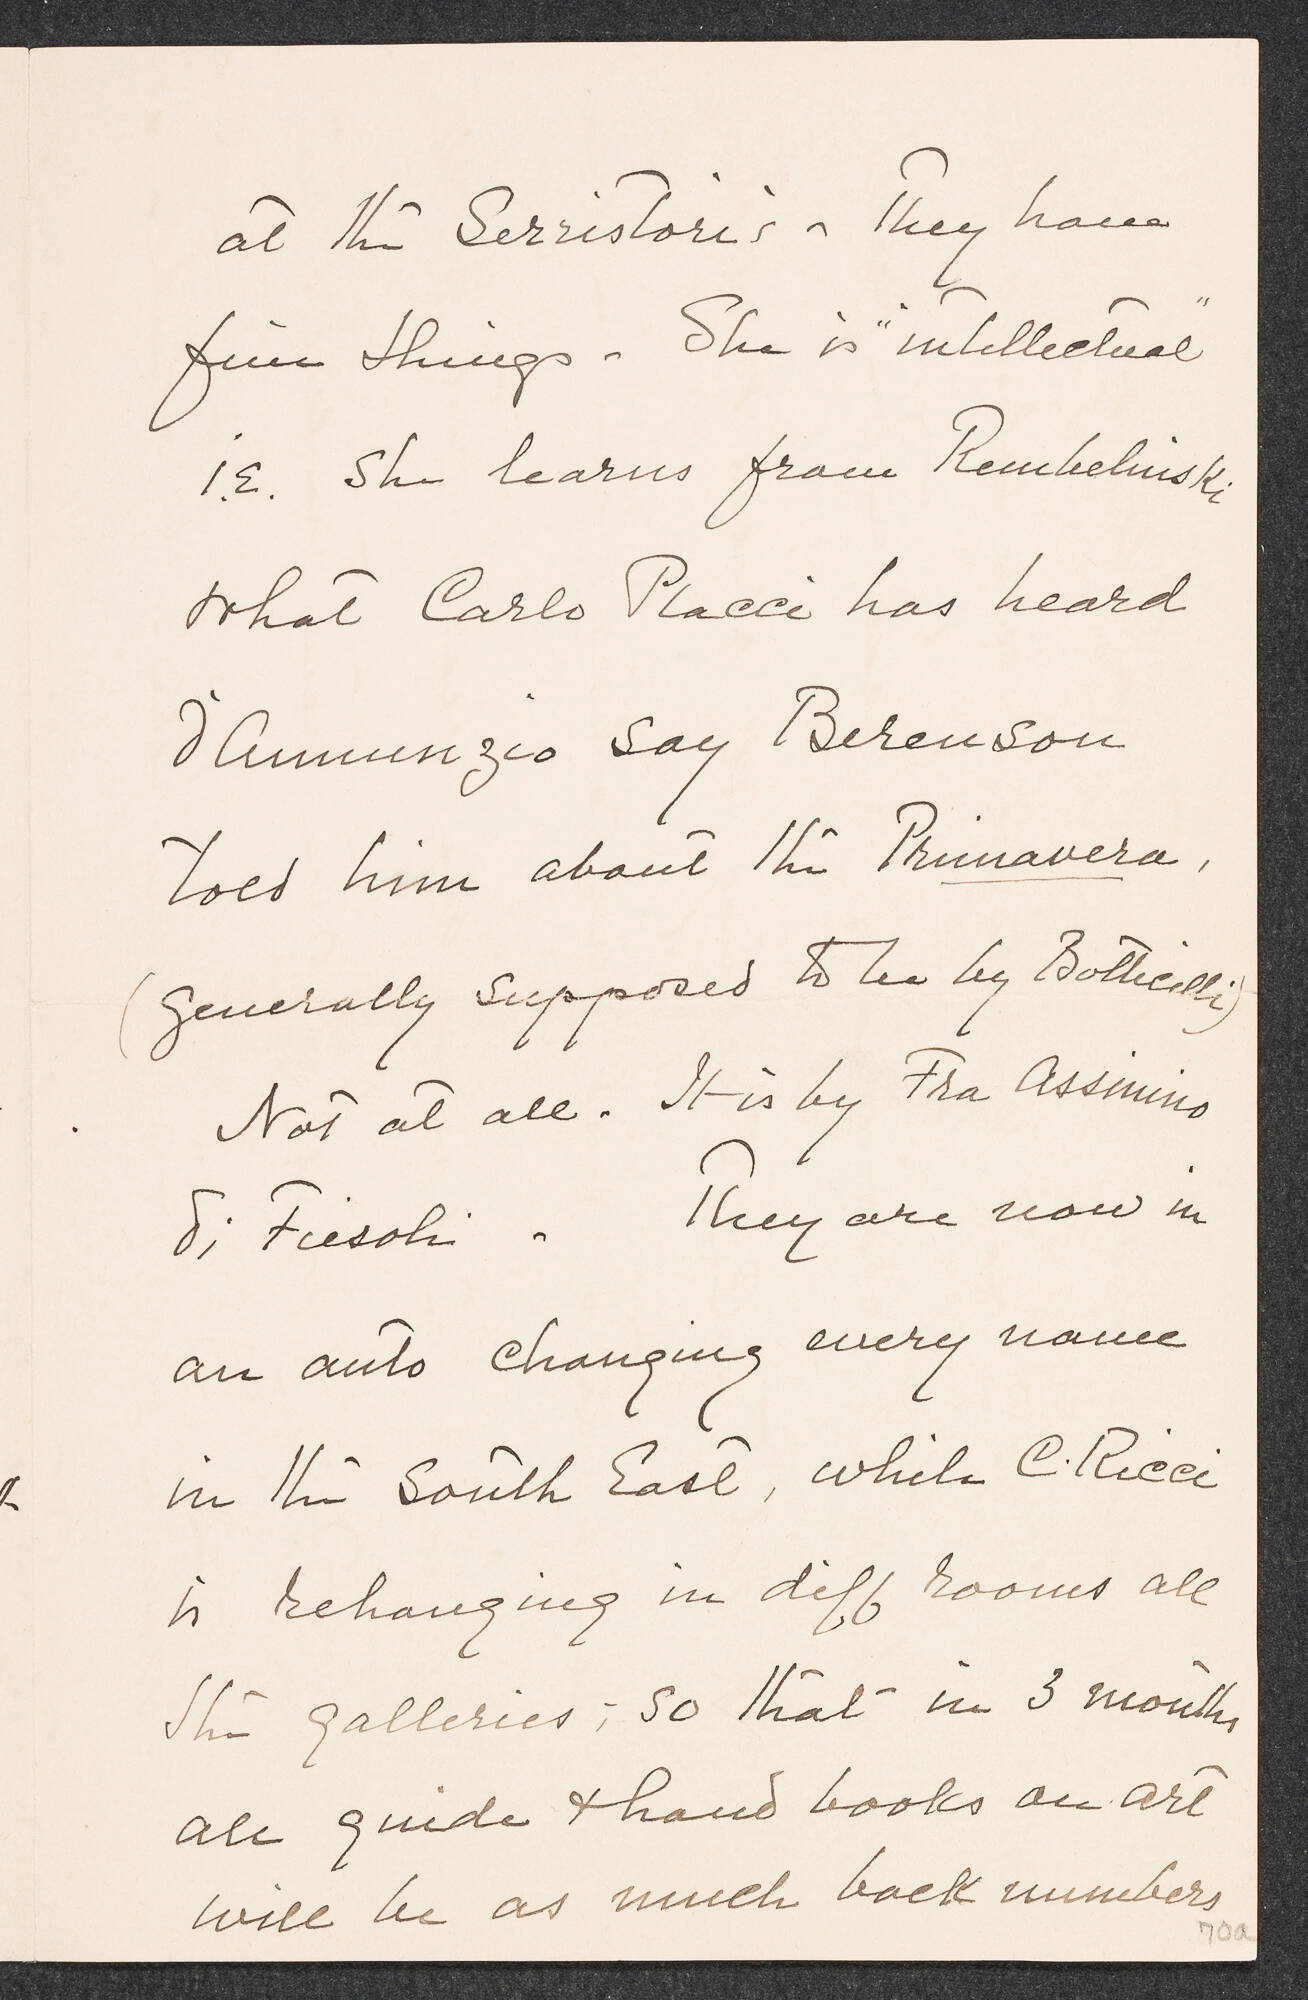 at the Serristori's - They have
fine things - She is "intellectual"
i.e. She learns from Rembelinski
what Carlo Placci has heard
d'Annunzio say Berenson
told him about the Primavera,
(generally supposed to be by Botticelli)
Not at all. It is by Fra Assinino
di Fiesoli - They are now in
an auto changing every name
in the South East, while C. Ricci
is rehanging in diff rooms all
the galleries; so that in 3 months
all guide & hand books on art
will be as much back numbers
70a